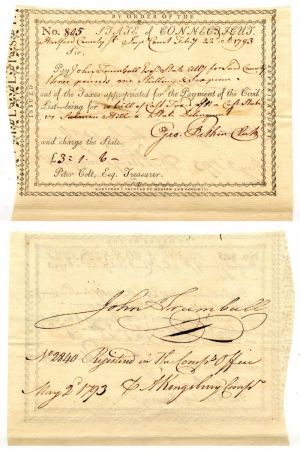 BY ORDER OF THE
No. 845, STATE of CONNECTICUT.
Hartford County ss. Sup. Court Feby 22d 1793
Sir,
Pay John Trumbull Esqr State Atty for said County
three pounds one Shilling & Six pence
out of the Taxes appropriated for the Payment of the Civil
List—being for a bill of Cost Taxed
vs Solomon Hill
Geo. Pitkin Clerk
and charge the State.
£3: 1. 6—
Peter Colt, Esq. Treasurer.
HARTFORD: PRINTED BY HUDSON AND GOODWIN.
John Trumbull
No 2840 Registered in the Comps. Office
May 2d 1793 A Kingsbury Comps